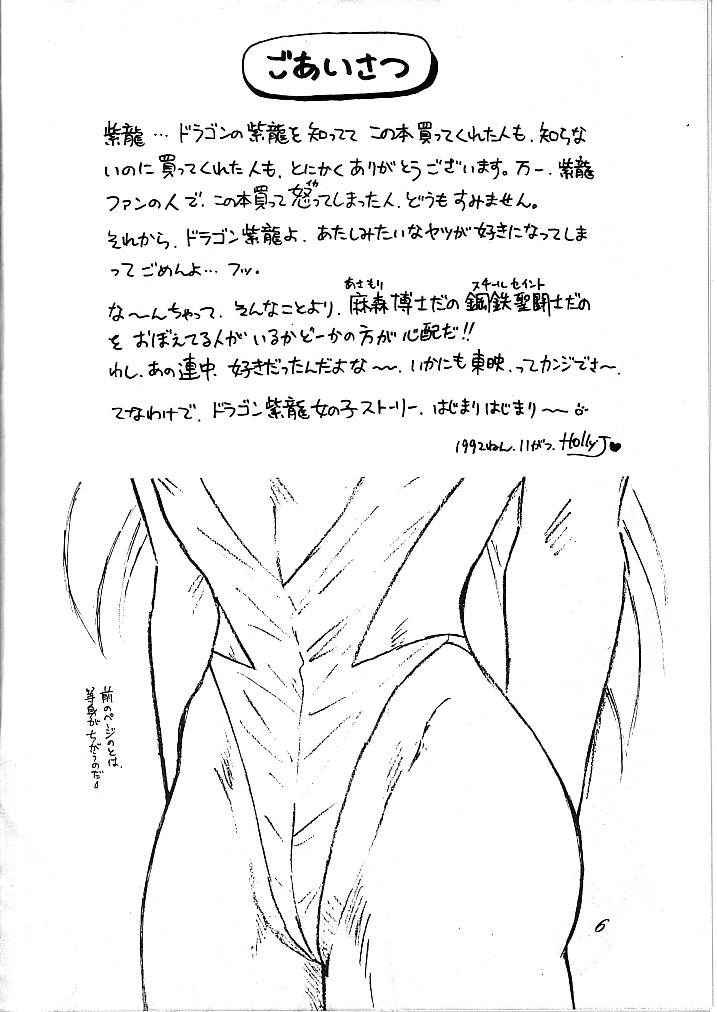 ごあいさつ
紫龍…ドラゴンの紫龍を知ってて この本買ってくれた人も、知らな
いのに買ってくれた人も、とにかくありがとうございます。万一、紫龍
ファンの人で、この本買って怒ってしまった人、どうもすみません。
それから、ドラゴン紫龍よ、あたしみたいなヤツが好きになってしま
ってごめんよ…フッ。
な〜んちゃって、そんなことより、麻森博士だの鋼鉄聖闘士だの
をおぼえてる人がいるかどーかの方が心配だ!!
わし、あの連中、好きだったんだよな〜〜、いかにも東映、ってカンジでさ〜、
てなわけで、ドラゴン紫龍女の子ストーリー、はじまりはじまり〜〜
1992ねん、11がつ、Holly J♥
前のページのとは、
等身がちがうのだ。
6